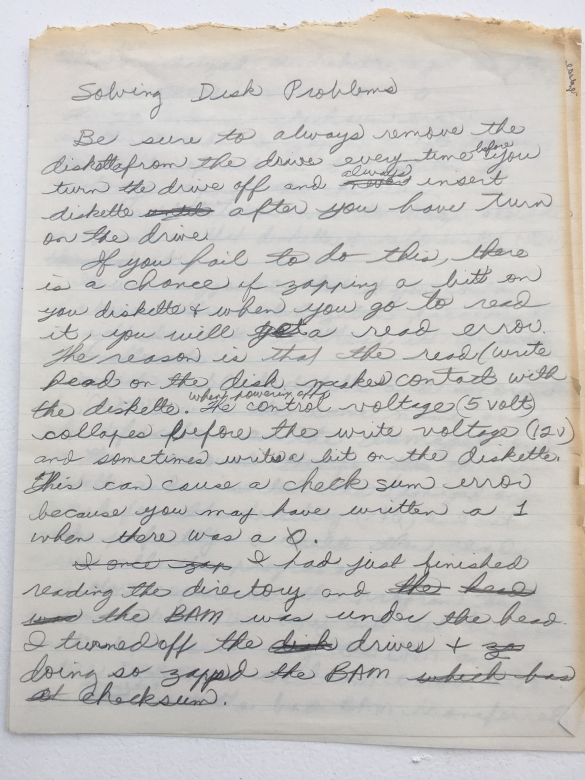 Solving Disk Problems
Be sure to always remove the
diskette from the drive every time before you
turn the drive off and always insert
diskette until after you have turn
on the drive.
If you fail to do this, there
is a chance if zapping a bit on
you diskette & when you go to read
it, you will get a read error.
The reason is that the read/write
head on the disk makes contact with
the diskette. when powering off The control voltage (5 volt)
collapes before the write voltage (12v)
and sometimes writes a bit on the diskette.
This can cause a check sum error
because you may have written a 1
when there was a 0.
I once zap I had just finished
reading the directory and the head
was the BAM was under the head.
I turned off the disk drives &
doing so zapped the BAM which has
checksum.